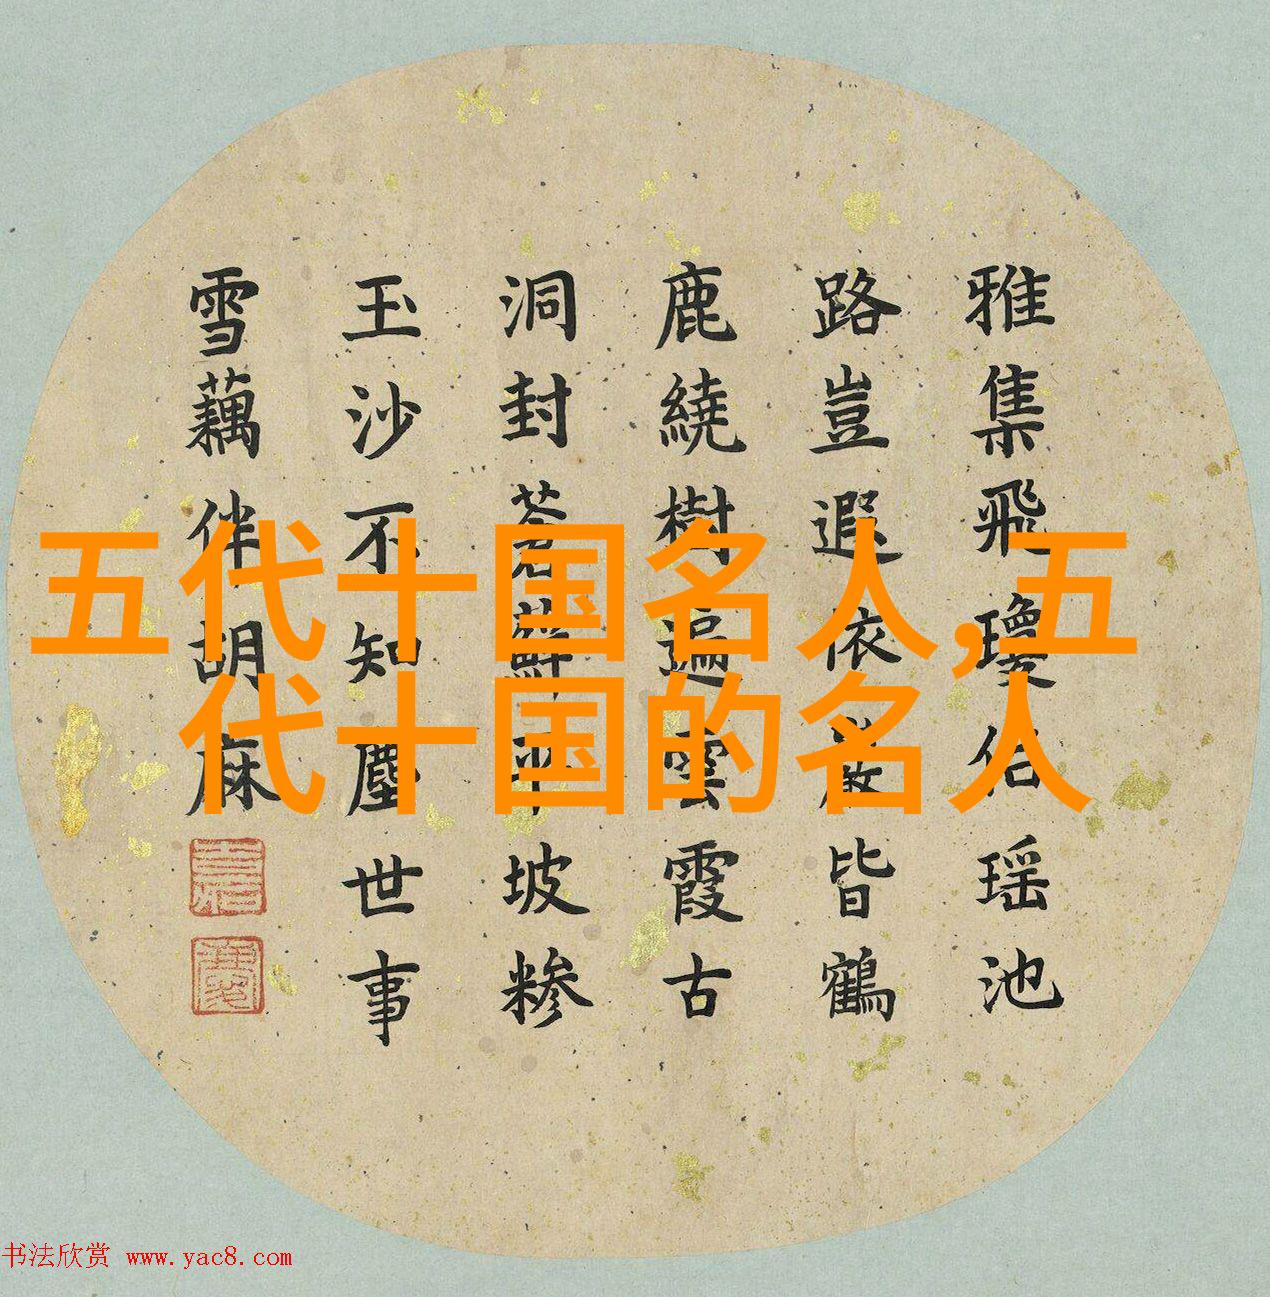 雅集飛瓊侣瑶池
路豈遐依皆鶴
鹿繞樹遍雲霞古
洞封蒼蘚平坡糝
玉沙不知塵世事
雪藕伴胡麻
五代十国名人,五
代十国的名人
书法欣赏 www.yac8.com